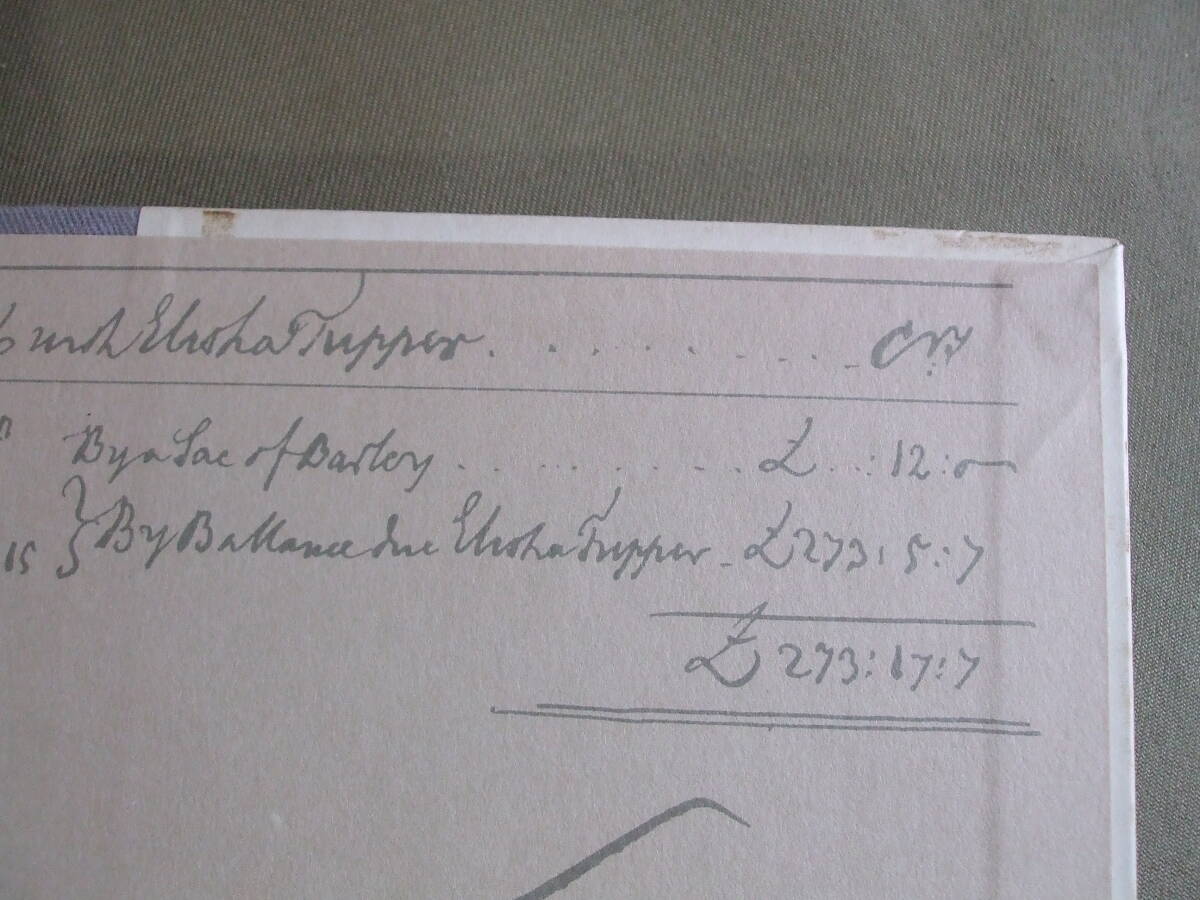 with Elisha Tupper . . . . . . . . . Cr
By a Sac of Barley . . . . . . . . . £ . . : 12 : 0
15 } By Ballance due Elisha Tupper - £ 273 : 5 : 7
£ 273 : 17 : 7